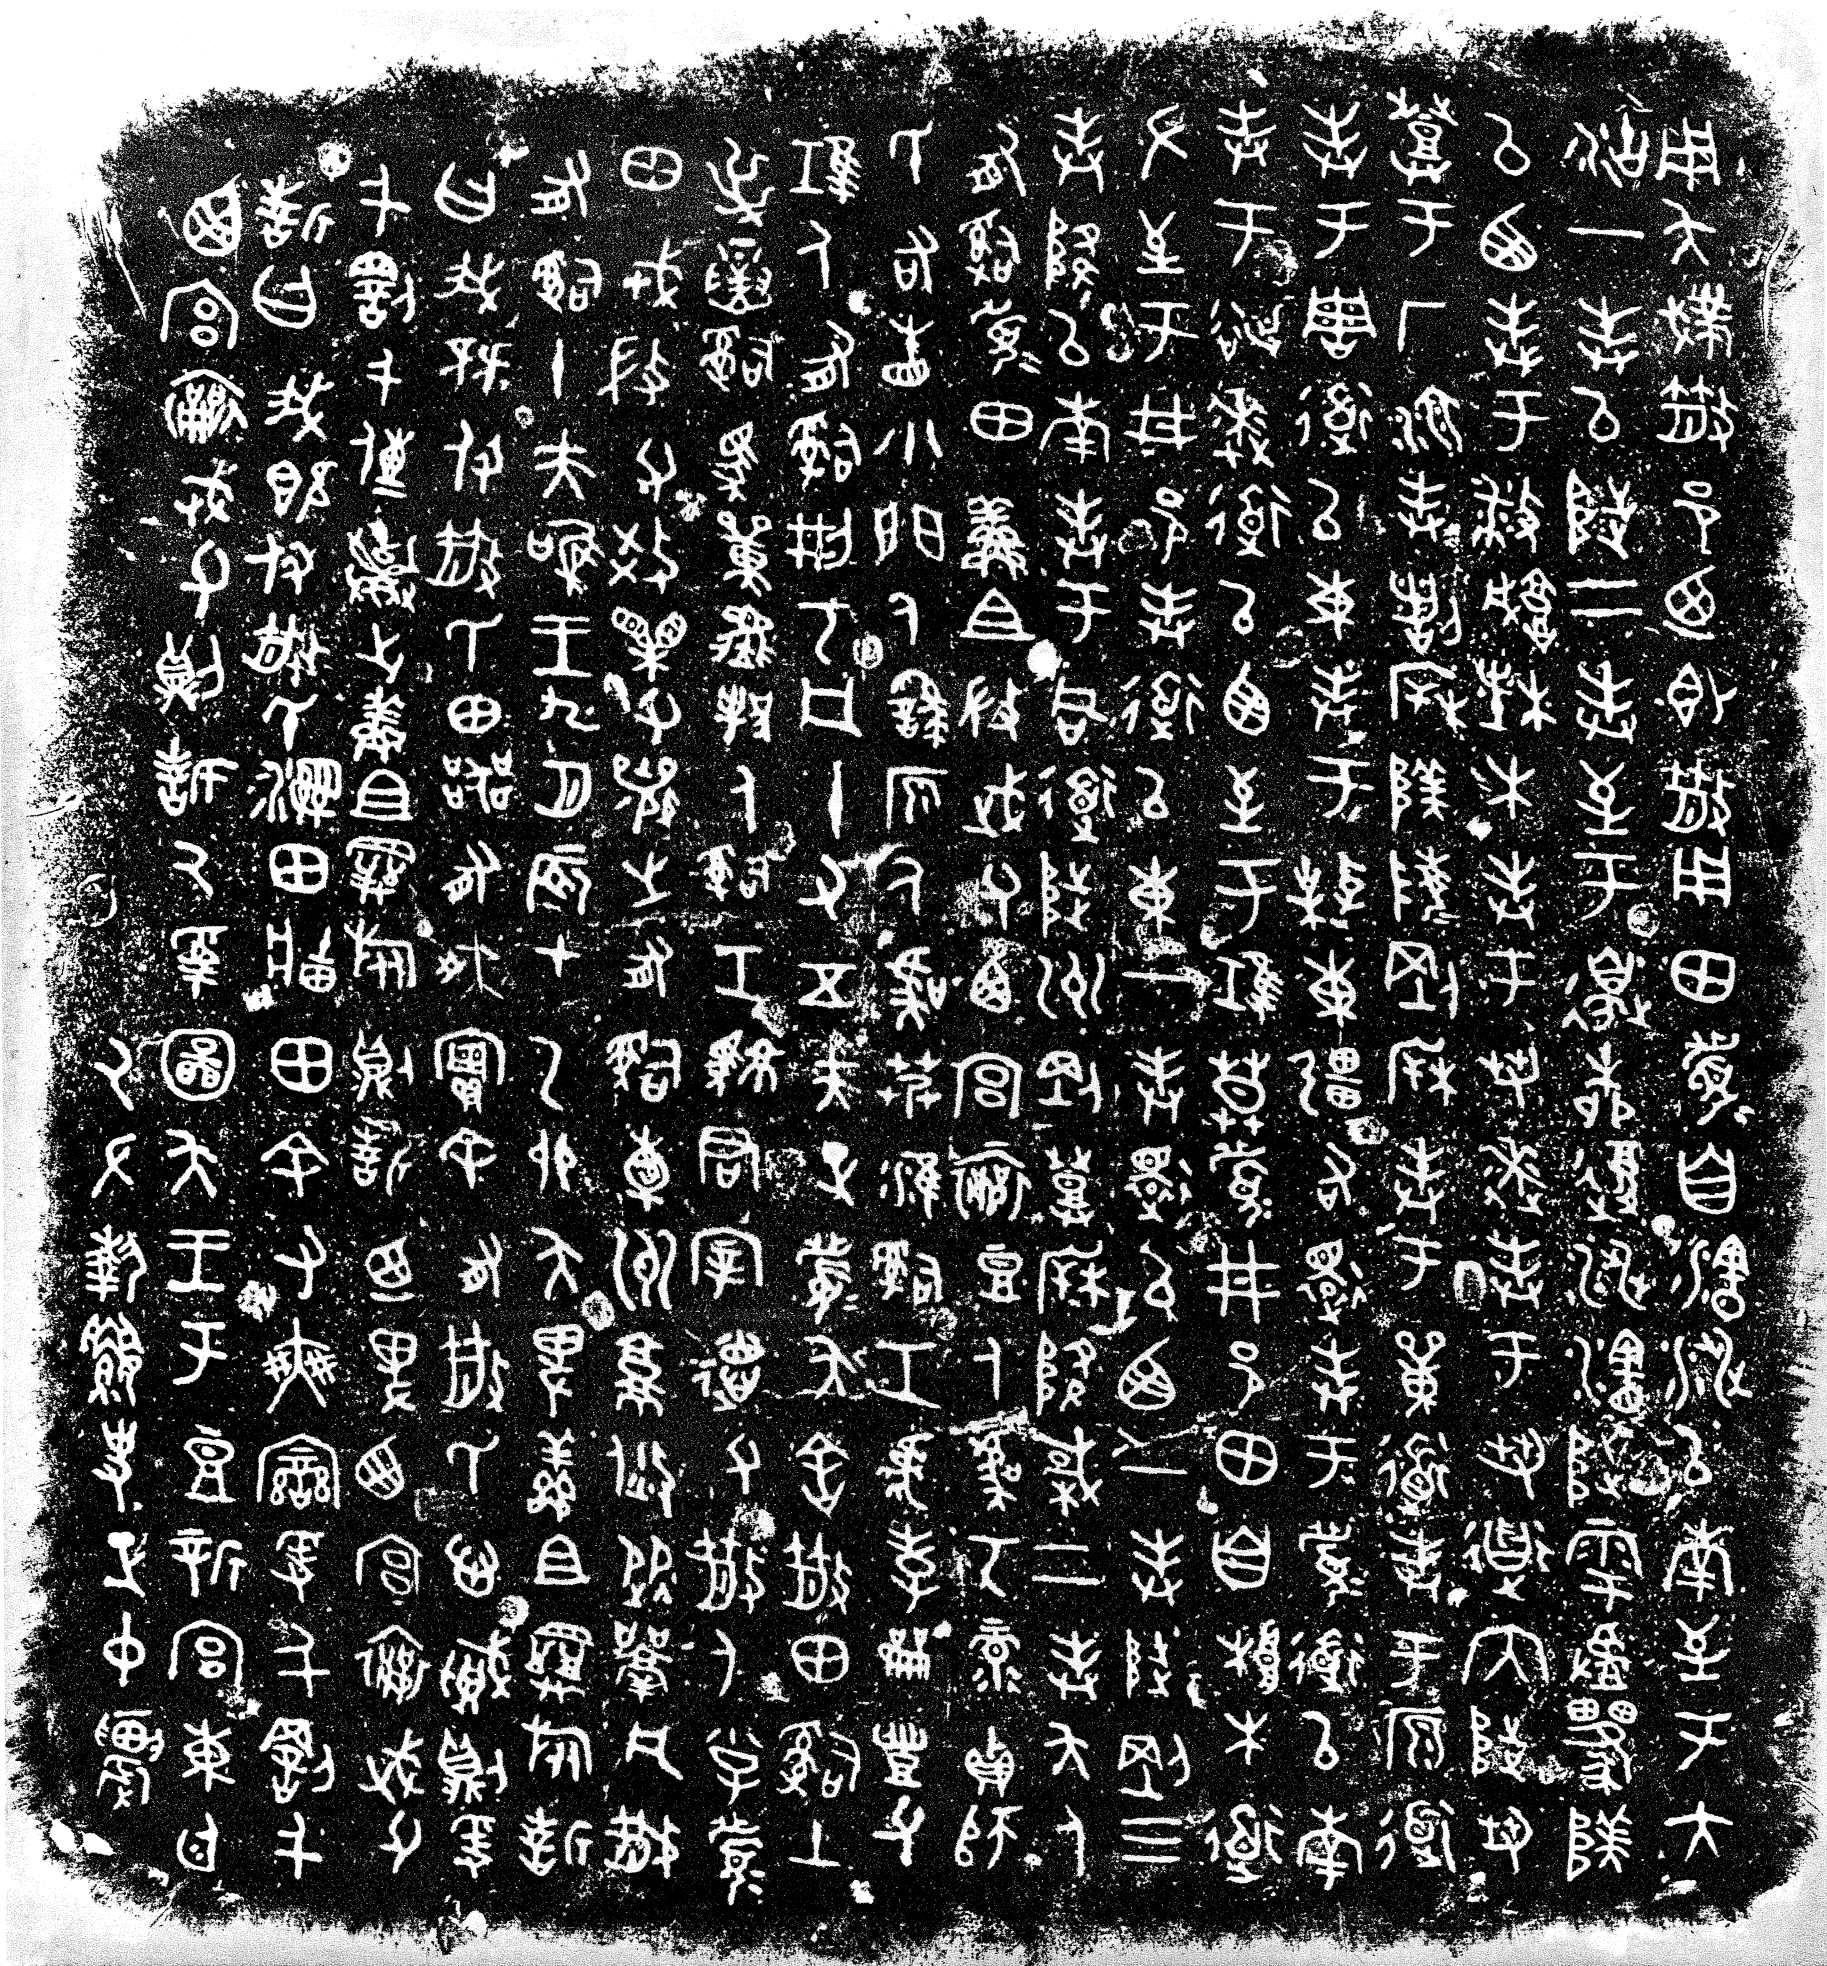 用夨𢦏散邑乃即散用田眉自瀗涉以南至于大
沽一封以陟二封至于邊柳復涉瀗陟雩𠭯𨽍陕
以西封于敝城楮木封于芻逨封于芻道内陟芻
登于厂湶封剖𣐺陕陵剛𣐺封于單道封于原道
封于周道以東封于𣊓東疆右還封于眉道以南
封于𥾝逨道以西至于堆莫眉井邑田自桹木道
左至于井邑封道以東一封還以西一封陟剛三
封降以南封于同道陟州剛登𣐺降棫二封夨人
有𤔲眉田鮮且微武父西宮襄豆人虞丂彔貞師
氏右眚小門人繇原人虞艿淮𤔲工虎孝開豐父
堆人有𤔲刑丂凡十又五夫正眉夨舍散田𤔲土
屰寅𤔲馬單堒人𤔲工駷君宰德父散人小子眉
田戎微父效𣪘父襄之有𤔲橐州就焂從𩰬凡散
有𤔲十夫唯王九月辰才乙卯夨卑鮮且𢍰旅誓
曰我既付散氏田器有爽實余有散氏心賊則爰
千罰千傳棄之鮮且𢍰旅則誓廼卑西宮襄武父
誓曰我既付散氏濕田牆田余又爽𤔲爰千罰千
西宮襄武父則誓厥受圖夨王于豆新宮東廷
厥左執𦅫史正中農